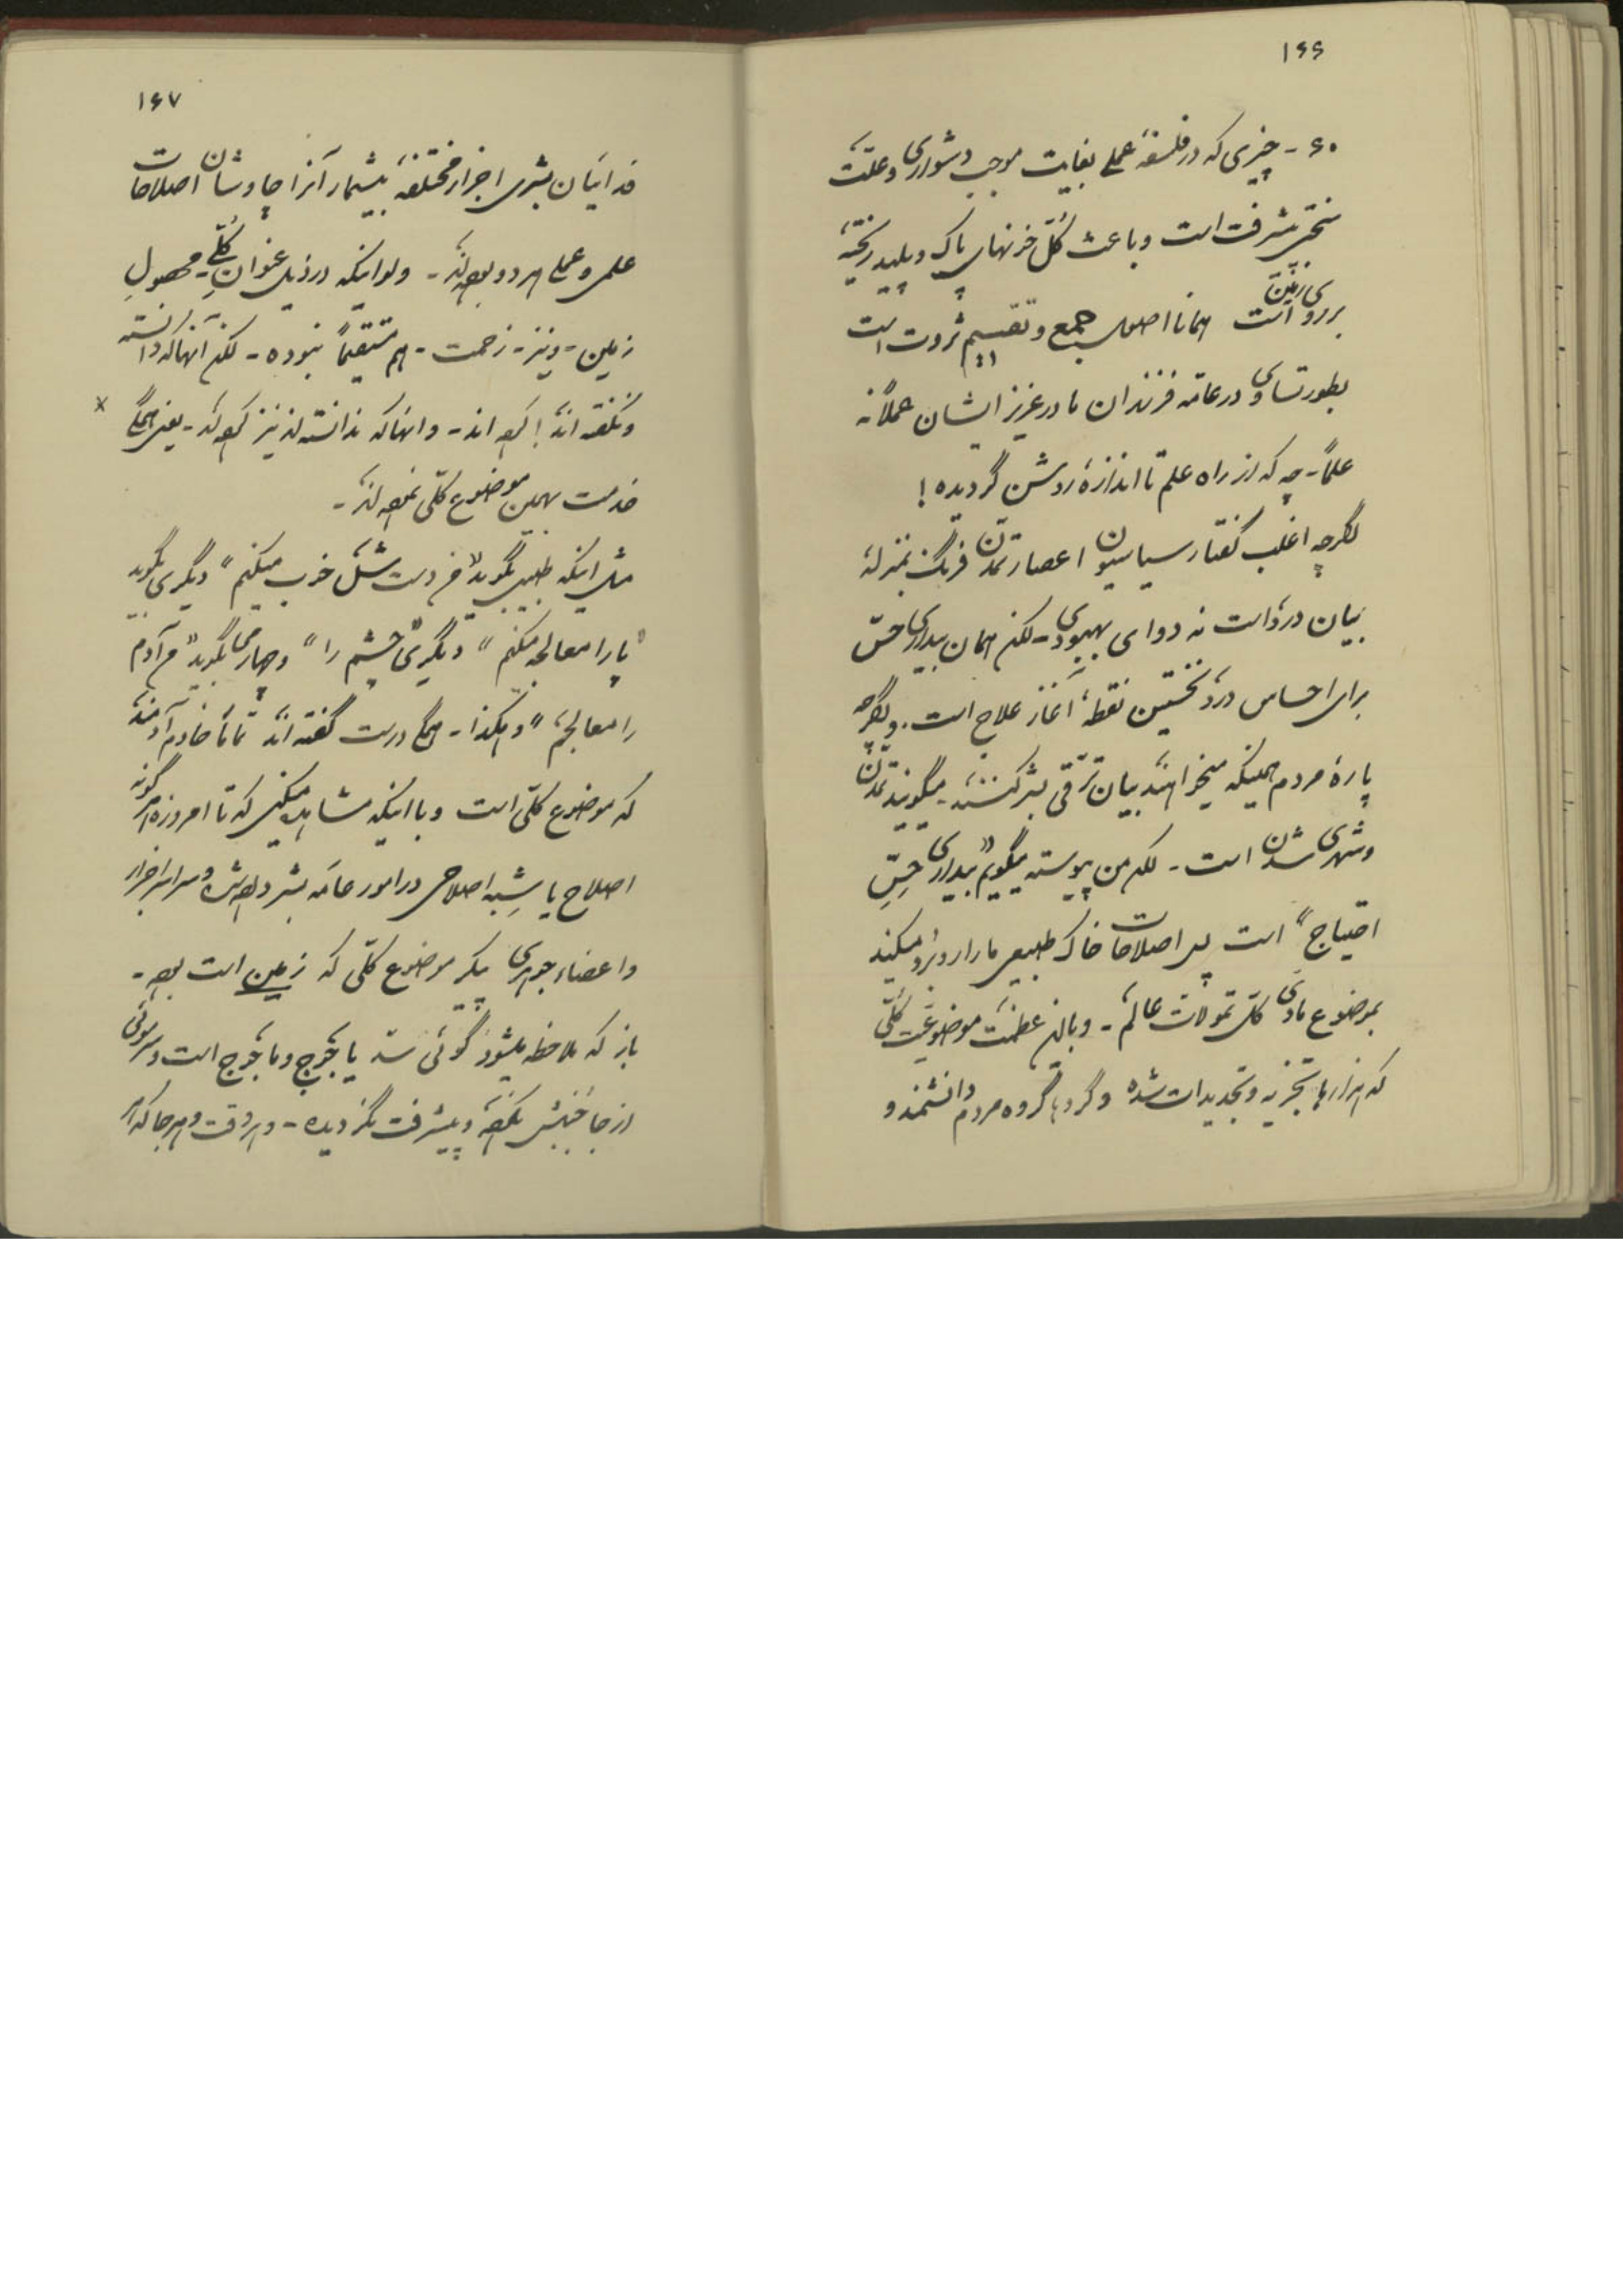 ۱۶۶
۶۰ - چیزی که در فلسفهٔ عملی بغایت موجب دشواری و علّت
پیشرفت است و باعث کلّ خونهای پاک و پلید ریختهٔ
بر روی زمین است همانا اصول جمع و تقسیم ثروت است
بطور تساوی در عامّه فرزندان مادر عزیز ایشان عملاً نه
علماً - چه که از راه علم تا اندازهٔ روشن گردیده !
اگرچه اغلب گفتار سیاسیون اعصار تمدّن فرنگ بمنزلهٔ
بیان درد است نه دوای بهبودی - لکن همان بیداری حسّ
برای احساس درد نخستین نقطهٔ آغاز علاج است. و اگرچه
پارهٔ مردم همینکه میخواهند بیان ترّقی بشر کنند، میگویند تمدّن
و شهری شدن است - لکن من پیوسته میگویم "بیداری حِسّ
احتیاج" است پس اصلاحات خاک طبیعی ما را روبرو میکند
بموضوع مادّی کلّ تموّلات عالم - و باین عظمت موضوعیّت کلّی
که هزارها تجزیه و تجدیدات شده و گروها گروه مردم دانشمند و
۱۶۷
فدائیان بشری اجزاء مختلفهٔ بیشمار آنرا چاوشان اصلاحات
علمی و عملی هر دو بوده‌اند - ولو اینکه در ذیل عنوان کلّی - محصول
زمین - و نیز - زحمت - هم مستقیماً نبوده - لکن آنها که دانسته
و نگفته اند ! کرده اند - و آنها که ندانسته اند نیز کرده اند - یعنی همگی ×
خدمت بهمین موضوع کلّی نموده‌اند -
مثل اینکه طبیبی بگوید "من دست شل خوب میکنم" دیگری بگوید
"پا را معالجه میکنم" دیگری "چشم را" و چهارمی بگوید "من آدم
را معالجم" و هکذا - همگی درست گفته اند تماماً خادم آدمند
که موضوع کلّی است و با اینکه مشاهده میکنی که تا امروزه هر گونه
اصلاح یا شِبه اصلاحی در امور عامّه بشر داده شده و سراسر اجزاء
و اعضاء جوهری پیکر موضوع کلّی که زمین است بوده -
باز که ملاحظه میشود گوئی سدّ یأجوج و مأجوج است و سر موئی
از جا جنبش نکرده و پیشرفت نگردیده - و هر وقت و هر جا که از